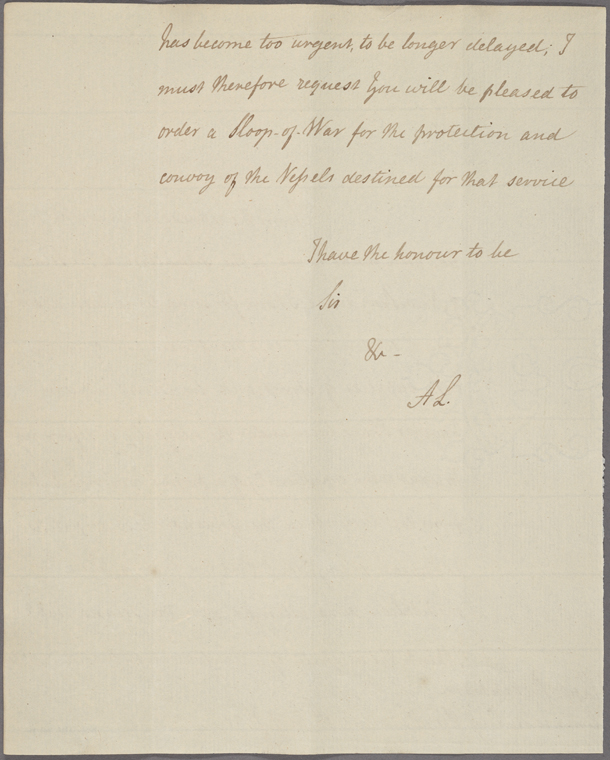 has become too urgent, to be longer delayed; I
must therefore request You will be pleased to
order a Sloop-of-War for the protection and
convoy of the Vessels destined for that service
I have the honour to be
Sir
&c -
A L.